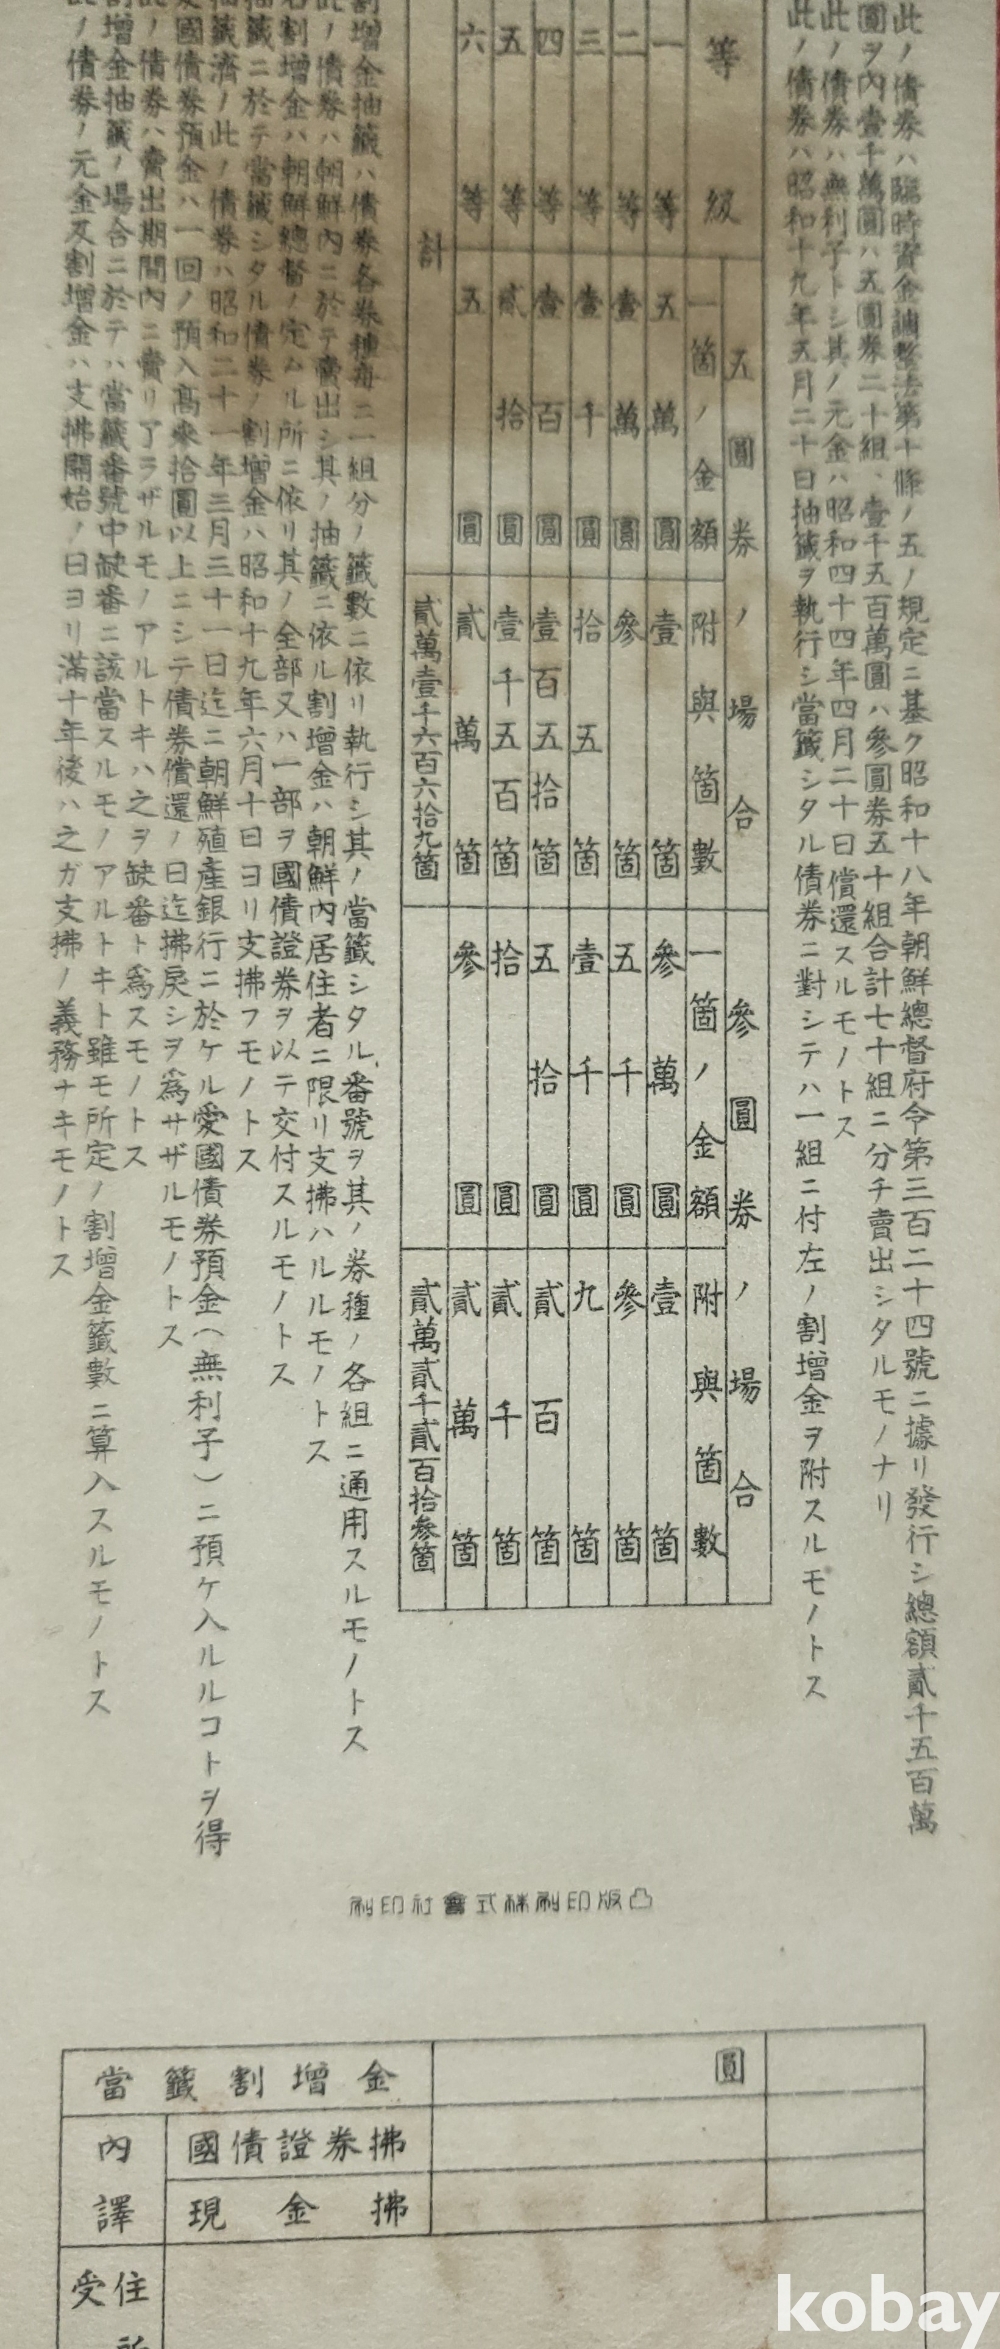 此ノ債券ハ臨時資金調整法第十條ノ五ノ規定ニ基ク昭和十八年朝鮮總督府令第三百二十四號ニ據リ發行シ總額貳千五百萬
圓ヲ內壹千萬圓ハ五圓券二十組、壹千五百萬圓ハ參圓券五十組合計七十組ニ分チ賣出シタルモノナリ
此ノ債券ハ無利子トシ其ノ元金ハ昭和四十四年四月二十日償還スルモノトス
此ノ債券ハ昭和十九年五月二十日抽籤ヲ執行シ當籤シタル債券ニ對シテハ一組ニ付左ノ割增金ヲ附スルモノトス
等級 五圓券ノ場合 參圓券ノ場合
一箇ノ金額 附與箇數 一箇ノ金額 附與箇數
一等 五萬圓 壹箇 參萬圓 壹箇
二等 壹萬圓 參箇 五千圓 參箇
三等 壹千圓 拾五箇 壹千圓 九箇
四等 壹百圓 壹百五拾箇 五拾圓 貳百箇
五等 貳拾圓 壹千五百箇 拾圓 貳千箇
六等 五圓 貳萬箇 參圓 貳萬箇
計 貳萬壹千六百六拾九箇 貳萬貳千貳百拾參箇
割增金抽籤ハ債券各券種每ニ一組分ノ籤數ニ依リ執行シ其ノ當籤シタル番號ヲ其ノ券種ノ各組ニ通用スルモノトス
此ノ債券ハ朝鮮內ニ於テ賣出シ其ノ抽籤ニ依ル割增金ハ朝鮮內居住者ニ限リ支拂ハルルモノトス
右割增金ハ朝鮮總督ノ定ムル所ニ依リ其ノ全部又ハ一部ヲ國債證券ヲ以テ交付スルモノトス
抽籤ニ於テ當籤シタル債券ノ割增金ハ昭和十九年六月十日ヨリ支拂フモノトス
抽籤濟ノ此ノ債券ハ昭和二十一年三月三十一日迄ニ朝鮮殖產銀行ニ於ケル愛國債券預金(無利子)ニ預ケ入ルルコトヲ得
愛國債券預金ハ一回ノ預入高參拾圓以上ニシテ債券償還ノ日迄拂戾シヲ爲サザルモノトス
此ノ債券ハ賣出期間內ニ賣リ了ラザルモノアルトキハ之ヲ缺番ト爲スモノトス
割增金抽籤ノ場合ニ於テハ當籤番號中缺番ニ該當スルモノアルトキト雖モ所定ノ割增金籤數ニ算入スルモノトス
此ノ債券ノ元金及割增金ハ支拂開始ノ日ヨリ滿十年後ハ之ガ支拂ノ義務ナキモノトス
刷印社會式株刷印版凸
當籤割增金 圓
內譯 國債證券拂
現金拂
受住
所
kobay